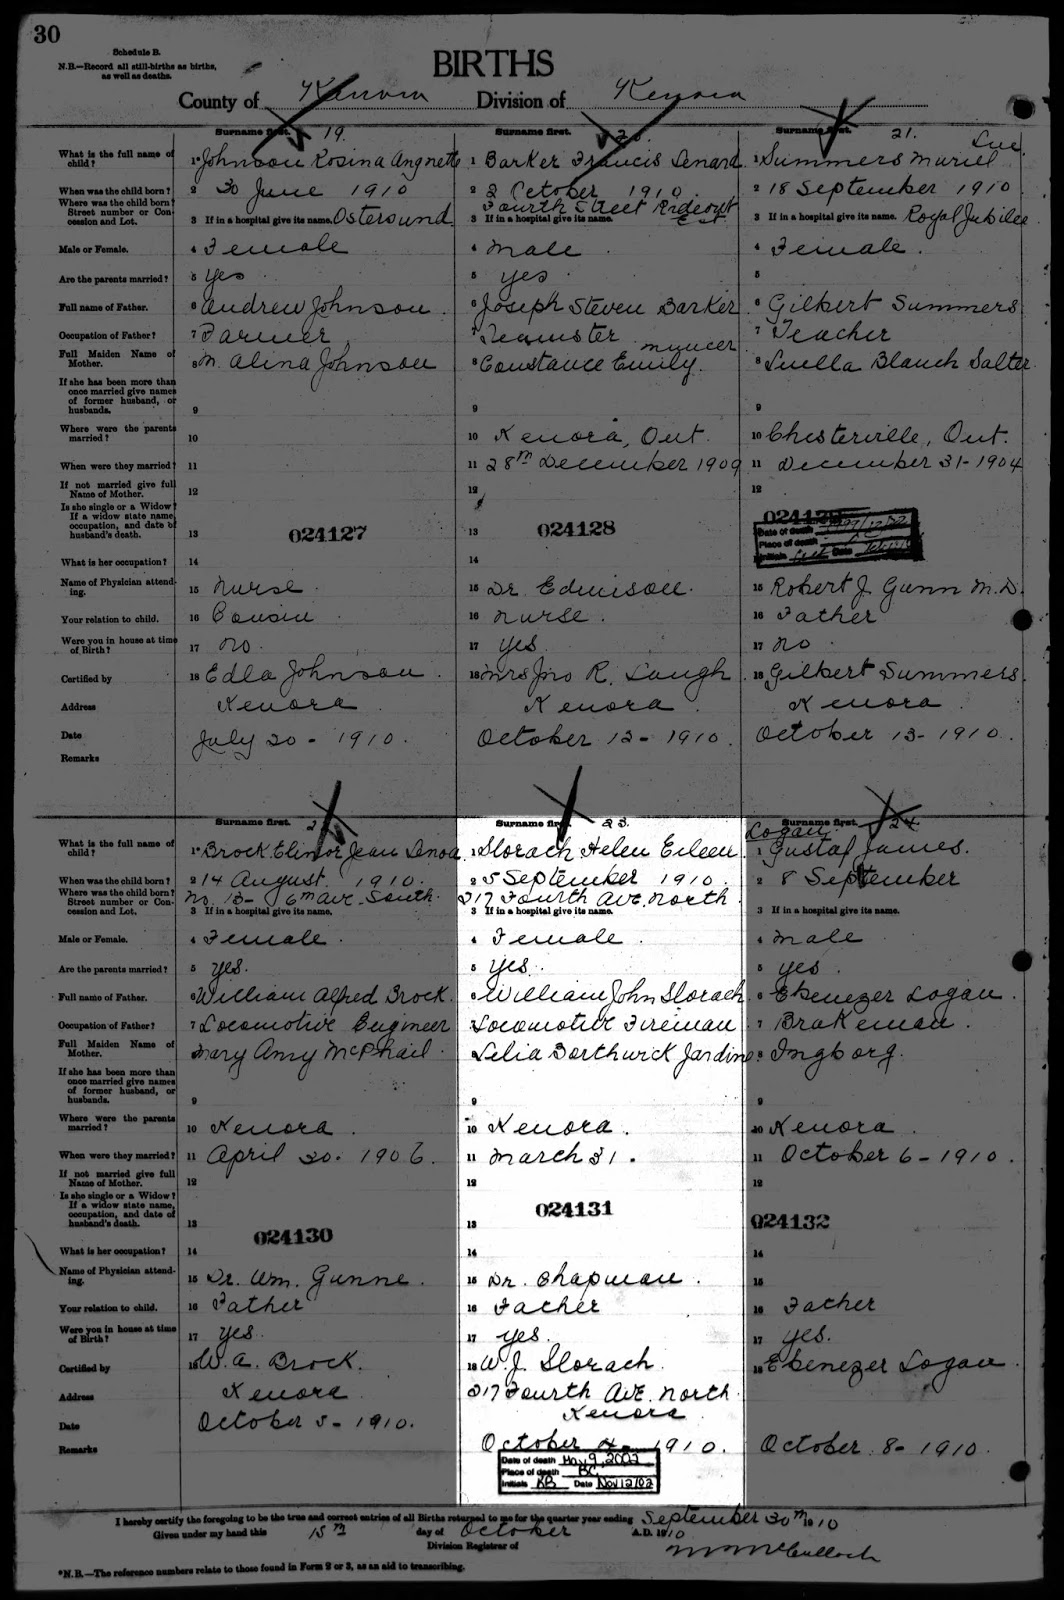 30
Schedule B.
N.B.—Record all still-births as births,
as well as deaths.
BIRTHS
County of Kenora Division of Kenora
Surname first. 19.
What is the full name of child? 1* Johnson Rosina Angnette
When was the child born? 2 30 June 1910
Where was the child born? Street number or Concession and Lot. 3 If in a hospital give its name. Ostersund
Male or Female. 4 Female
Are the parents married? 5 yes
Full name of Father. 6 Andrew Johnson
Occupation of Father? 7 Farmer
Full Maiden Name of Mother. 8 M. Alina Johnson
If she has been more than once married give names of former husband, or husbands. 9
Where were the parents married? 10
When were they married? 11
If not married give full Name of Mother. 12
Is she single or a Widow? If a widow state name, occupation, and date of husband's death. 13
024127
What is her occupation? 14
Name of Physician attending. 15 Nurse
Your relation to child. 16 Cousin
Were you in house at time of Birth? 17 no
Certified by 18 Edla Johnson
Address Kenora
Date July 20 - 1910.
Remarks
Surname first.
1 Barker Francis Lenard
2 2 October 1910
Fourth Street Rideout Est
3 If in a hospital give its name.
4 male
5 yes
6 Joseph Steven Barker
7 Teamster
8 Constance Emily Muncer
9
10 Kenora, Ont.
11 28th December 1909
12
13
024128
14
15 Dr Edmison
16 nurse
17 yes
18 Mrs Jno R. Laugh
Kenora
October 12 - 1910.
Surname first. 21.
1 Summers Muriel
2 18 September 1910
3 If in a hospital give its name. Royal Jubilee
4 Female
5
6 Gilbert Summers
7 Teacher
8 Luella Blanch Salter
9
10 Chesterville, Ont.
11 December 31 - 1904
12
Date of death
Place of death
Initials Date
15 Robert J. Gunn M.D.
16 Father
17 no
18 Gilbert Summers
Kenora
October 13 - 1910.
Surname first.
What is the full name of child? 1* Brock Elinor Jean Lenoa
When was the child born? 2 14 August 1910.
Where was the child born? Street number or Concession and Lot. No. 13 - 6th Ave. South
3 If in a hospital give its name.
Male or Female. 4 Female
Are the parents married? 5 yes.
Full name of Father. 6 William Alfred Brock
Occupation of Father? 7 Locomotive Engineer
Full Maiden Name of Mother. Mary Amy McPhail
If she has been more than once married give names of former husband, or husbands. 9
Where were the parents married? 10 Kenora
When were they married? 11 April 30. 1906.
If not married give full Name of Mother. 12
Is she single or a Widow? If a widow state name, occupation, and date of husband's death. 13
024130
What is her occupation? 14
Name of Physician attending. 15 Dr. Wm. Gunne
Your relation to child. 16 Father
Were you in house at time of Birth? 17 yes.
Certified by 18 W. A. Brock
Address Kenora
Date October 5 - 1910.
Remarks
Surname first. 23.
1 Slorach Helen Eileen
2 5 September 1910
217 Fourth Ave. North
3 If in a hospital give its name.
4 Female
5 yes
6 William John Slorach
Locomotive Fireman
Lelia Borthwick Jardine
9
10 Kenora.
11 March 31.
12
024131
13
14
15 Dr. Chapman.
16 Father
17 yes.
18 W. J. Slorach.
217 Fourth Ave. North
Kenora
October 4 - 1910.
Date of death May 9, 2002
Place of death BC
Initials KB Date Nov 12/02
Surname first. 24
1 Logan Gustaf James.
2 8 September
3 If in a hospital give its name.
4 male
5 yes.
6 Ebenezer Logan.
7 Brakeman.
8 Ingborg.
9
10 Kenora
11 October 6 - 1910.
12
024132
14
15
16 Father
17 yes.
18 Ebenezer Logan
October 8 - 1910.
I hereby certify the foregoing to be the true and correct entries of all Births returned to me for the quarter year ending September 30th 1910
Given under my hand this 15th day of October A.D. 1910
Division Registrar of
*N.B.—The reference numbers relate to those found in Form 2 or 3, as an aid to transcribing.